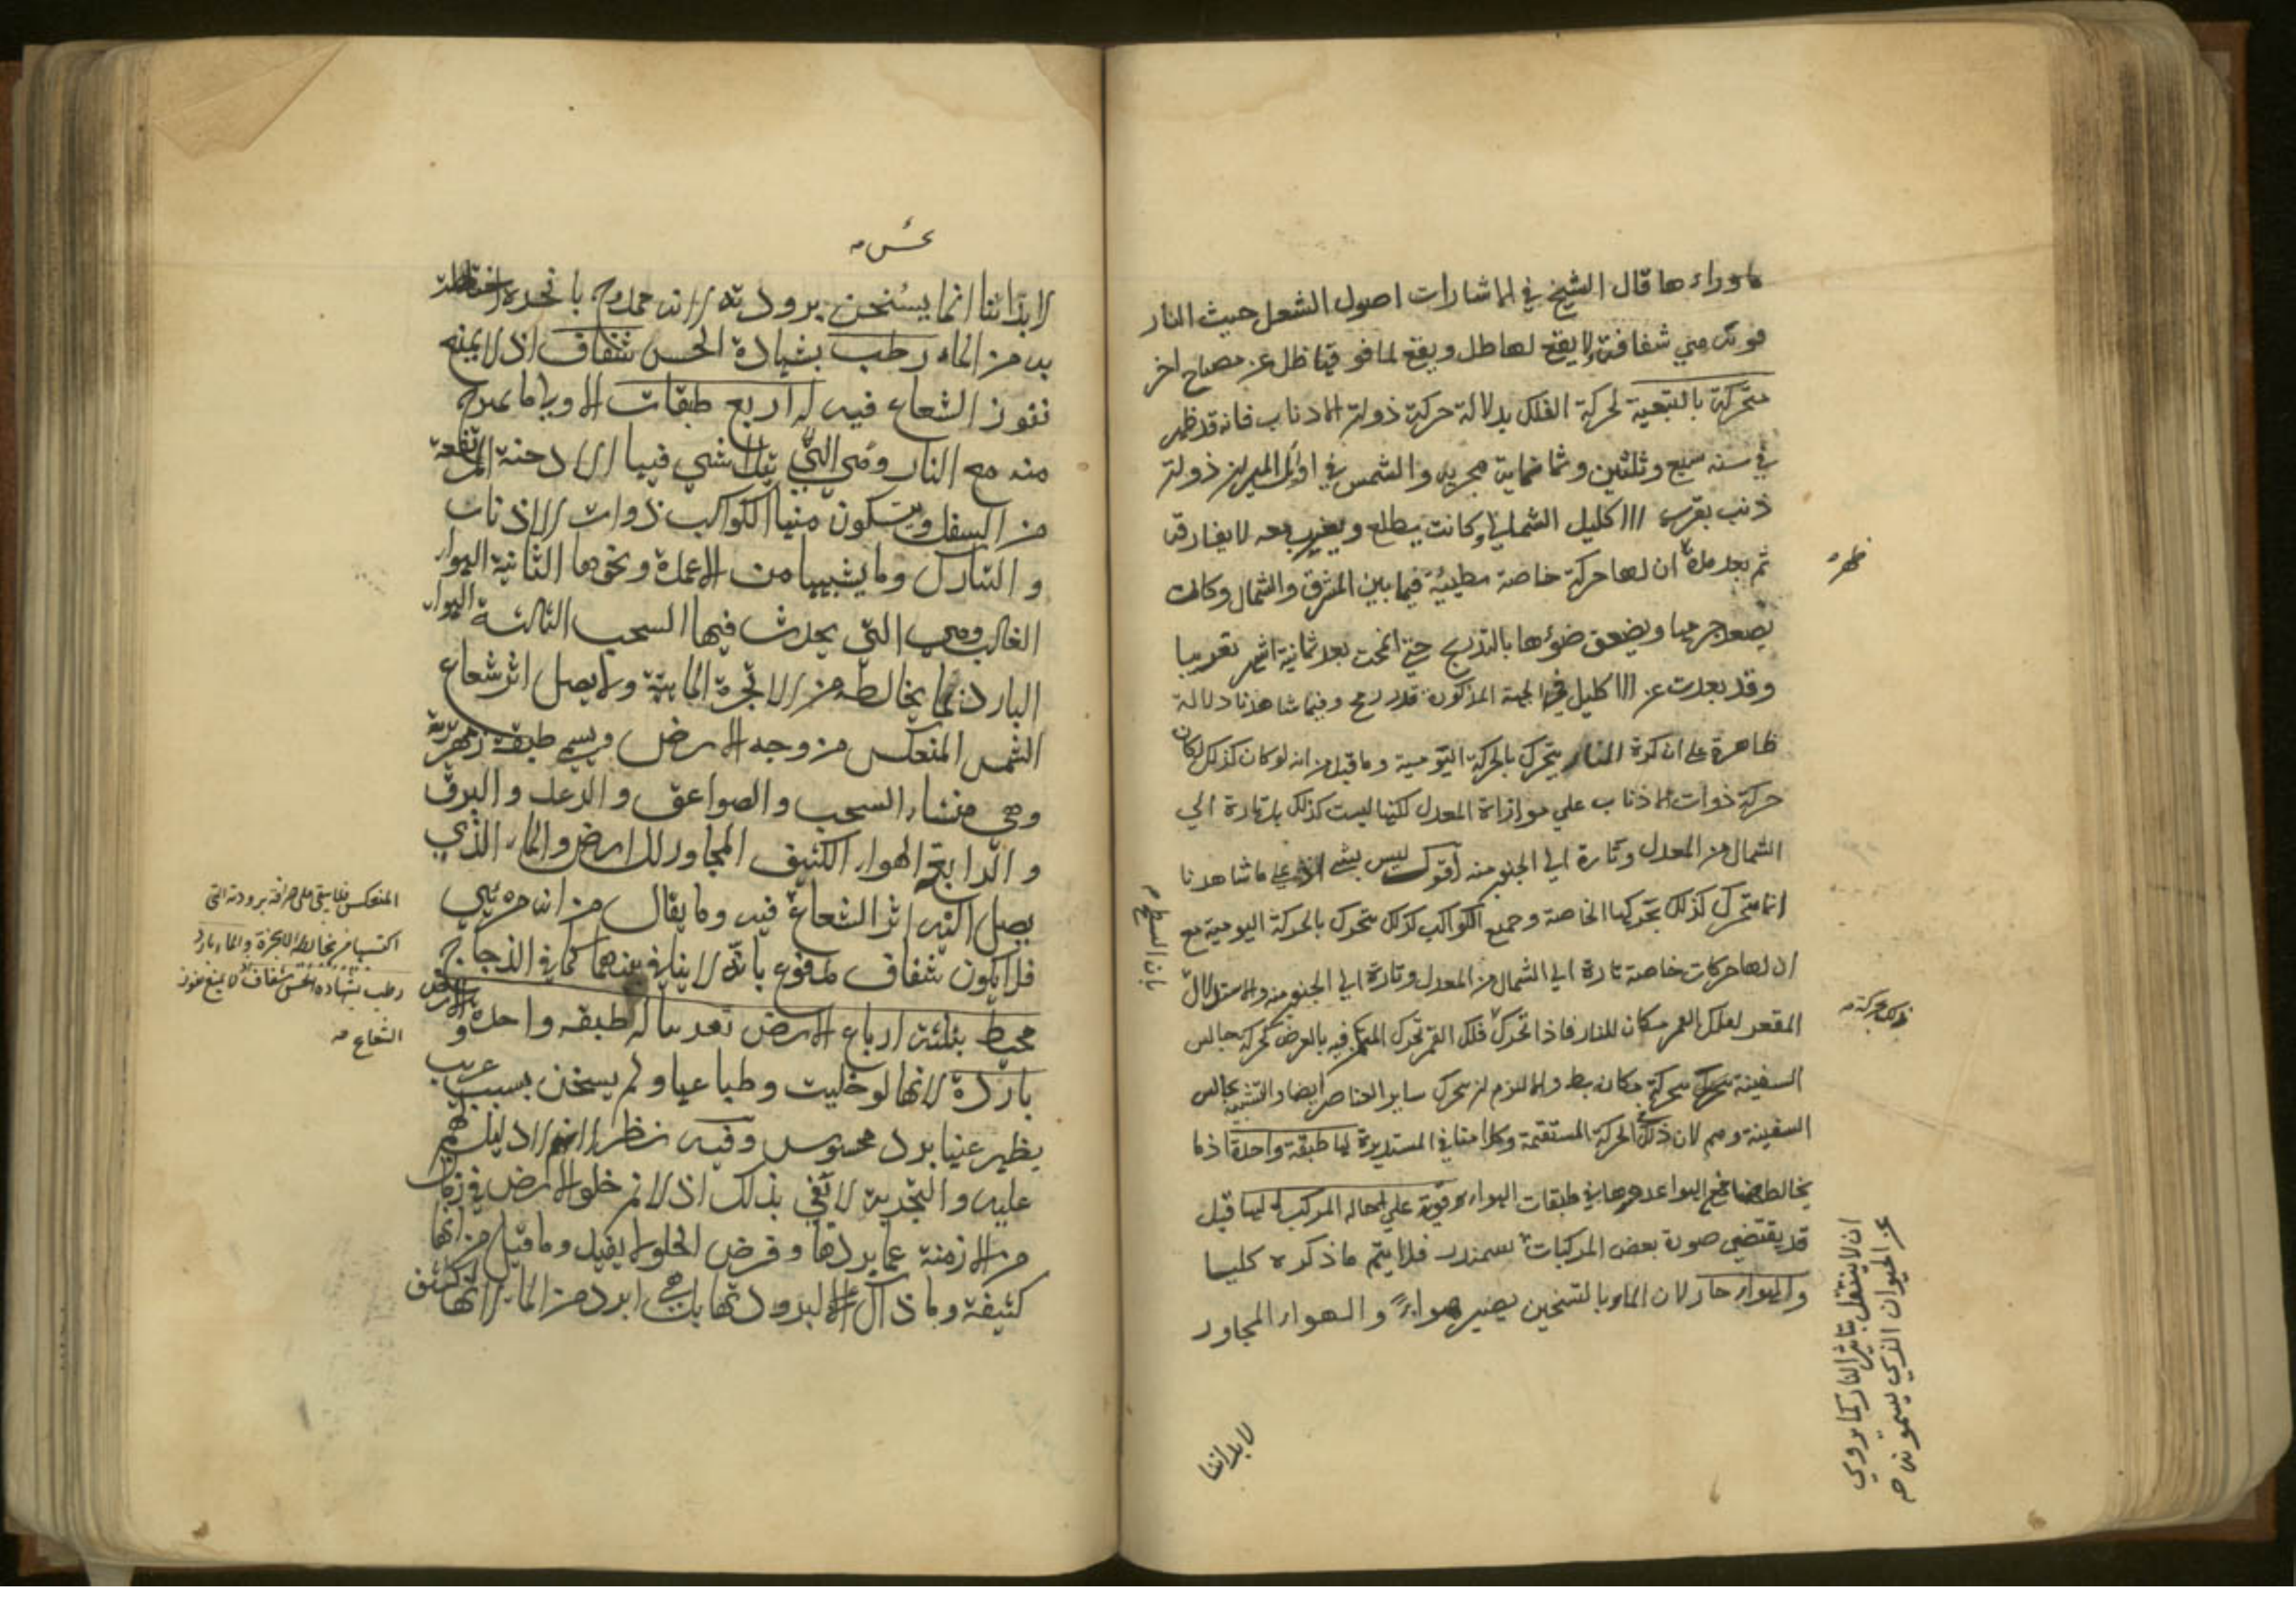 ما وراءها قال الشيخ في الاشارات اصول الشعل حيث النار
قوية هي شفافة لا يقع لها ظل ويقع لما فوقها ظل عن مصباح اخر
متحركة بالتبعية لحركة الفلك بدلالة حركة ذوات الاذناب فانه قد ظهر
في سنه سبع وثلثين وثمانماية هجريه والشمس في اول الميزان ذوات
ذنب بقرب الاكليل الشمالي وكانت يطلع ويغرب معه لا يفارقه
ثم بعد مدة ان لها حركة خاصة بطيئة فيما بين المشرق والشمال وكانت
ظهر
يصغر جرمها ويضعف ضوئها بالتدريج حتى انمحت بعد ثمانية اشهر تقريبا
وقد بعدت عن الاكليل في الجهة المذكورة قدر رمح وفيما شاهدنا دلالة
ظاهرة على ان كرة النار يتحرك بالحركة اليومية وما قيل من انه لو كان كذلك لكان
حركة ذوات الاذناب على موازاة المعدل لكنها ليست كذلك بل تارة الي
الشمال من المعدل وتارة الي الجنوب منه اقول ليس بشي على ما شاهدنا
انما يتحرك كذلك بحركتها الخاصة وجميع الكواكب كذلك يتحرك بالحركة اليومية مع
ان لها حركات خاصة تارة الي الشمال من المعدل وتارة الي الجنوب منه والاستدلال
بان السطح
المقعر لفلك القمر مكان للنار فاذا تحرك فلك القمر تحرك المتمكن فيه بالعرض كحركة جالس
السفينة بحركة مكانه بط والا لزم ان يتحرك ساير العناصر ايضا والتشبيه بجالس
السفينة وهم لان ذلك في الحركة المستقيمة وكلامنا في المستديرة لها طبقة واحدة اذ ما
يخالطها مع الهواء عدوها في طبقات الهواء قوية على احالة المركب اليها قيل
قد يقتضي صورة بعض المركبات فلا يتم ما ذكره كليا
ان لا ينتقل بتاثير النار كما يروي
عن الحيوان الذي يسمونه
والهواء حار لان الماء بالتسخين يصير هواء والهواء المجاور
لابداننا
لابداننا انما يستحن برودته لانه ممدوح بابخرة اختلطت
به من الماء رطب بشهادة الحس شفاف اذ لا يمنع
نفوذ الشعاع فيه له اربع طبقات الاولى ما يمتزج
منه مع النار وهي التي يتلاشي فيها الادخنة المرتفعة
من السفل ويتكون منها الكواكب ذوات الاذناب
والنيازك وما يشبهها من الاعمدة ونحوها الثانية الهواء
الغالب وهي التي يحدث فيها السحب الثالثة الهواء
البارد بما يخالطه من الابخرة المائية ولا يصل اثر شعاع
الشمس المنعكس من وجه الارض ويسمى طبقة زمهريرية
وهي منشاء السحب والصواعق والرعد والبرق
والرابعة الهواء الكثيف المجاور للارض والماء الذي
يصل اليه اثر الشعاع فيه وما يقال من انه مرئي
فلا يكون شفاف مدفوع بانه لا ينافي بينهما كما في الزجاج
محيط بثلثة ارباع الارض تقريبا له طبقة واحدة والارض
باردة لانها لو خليت وطباعها ولم يسخن بسبب غريب
يظهر عنها برد محسوس وفيه نظر اذ لا دليل لهم
عليه والتجربة لا تفي بذلك اذ لا نم خلو الارض في زمان
من الازمنة عما يبردها وفرض الخلو لا يفيد وما قيل من انها
كثيفة وما ذاك الا لبرودتها بل هي ابرد من الماء لانها اكثف
المنعكس فلا يبقى على صرافة برودته التي
اكتسبها من مخالطة الابخرة والماء بارد
رطب بشهادة الحس شفاف لا يمنع نفوذ
الشعاع